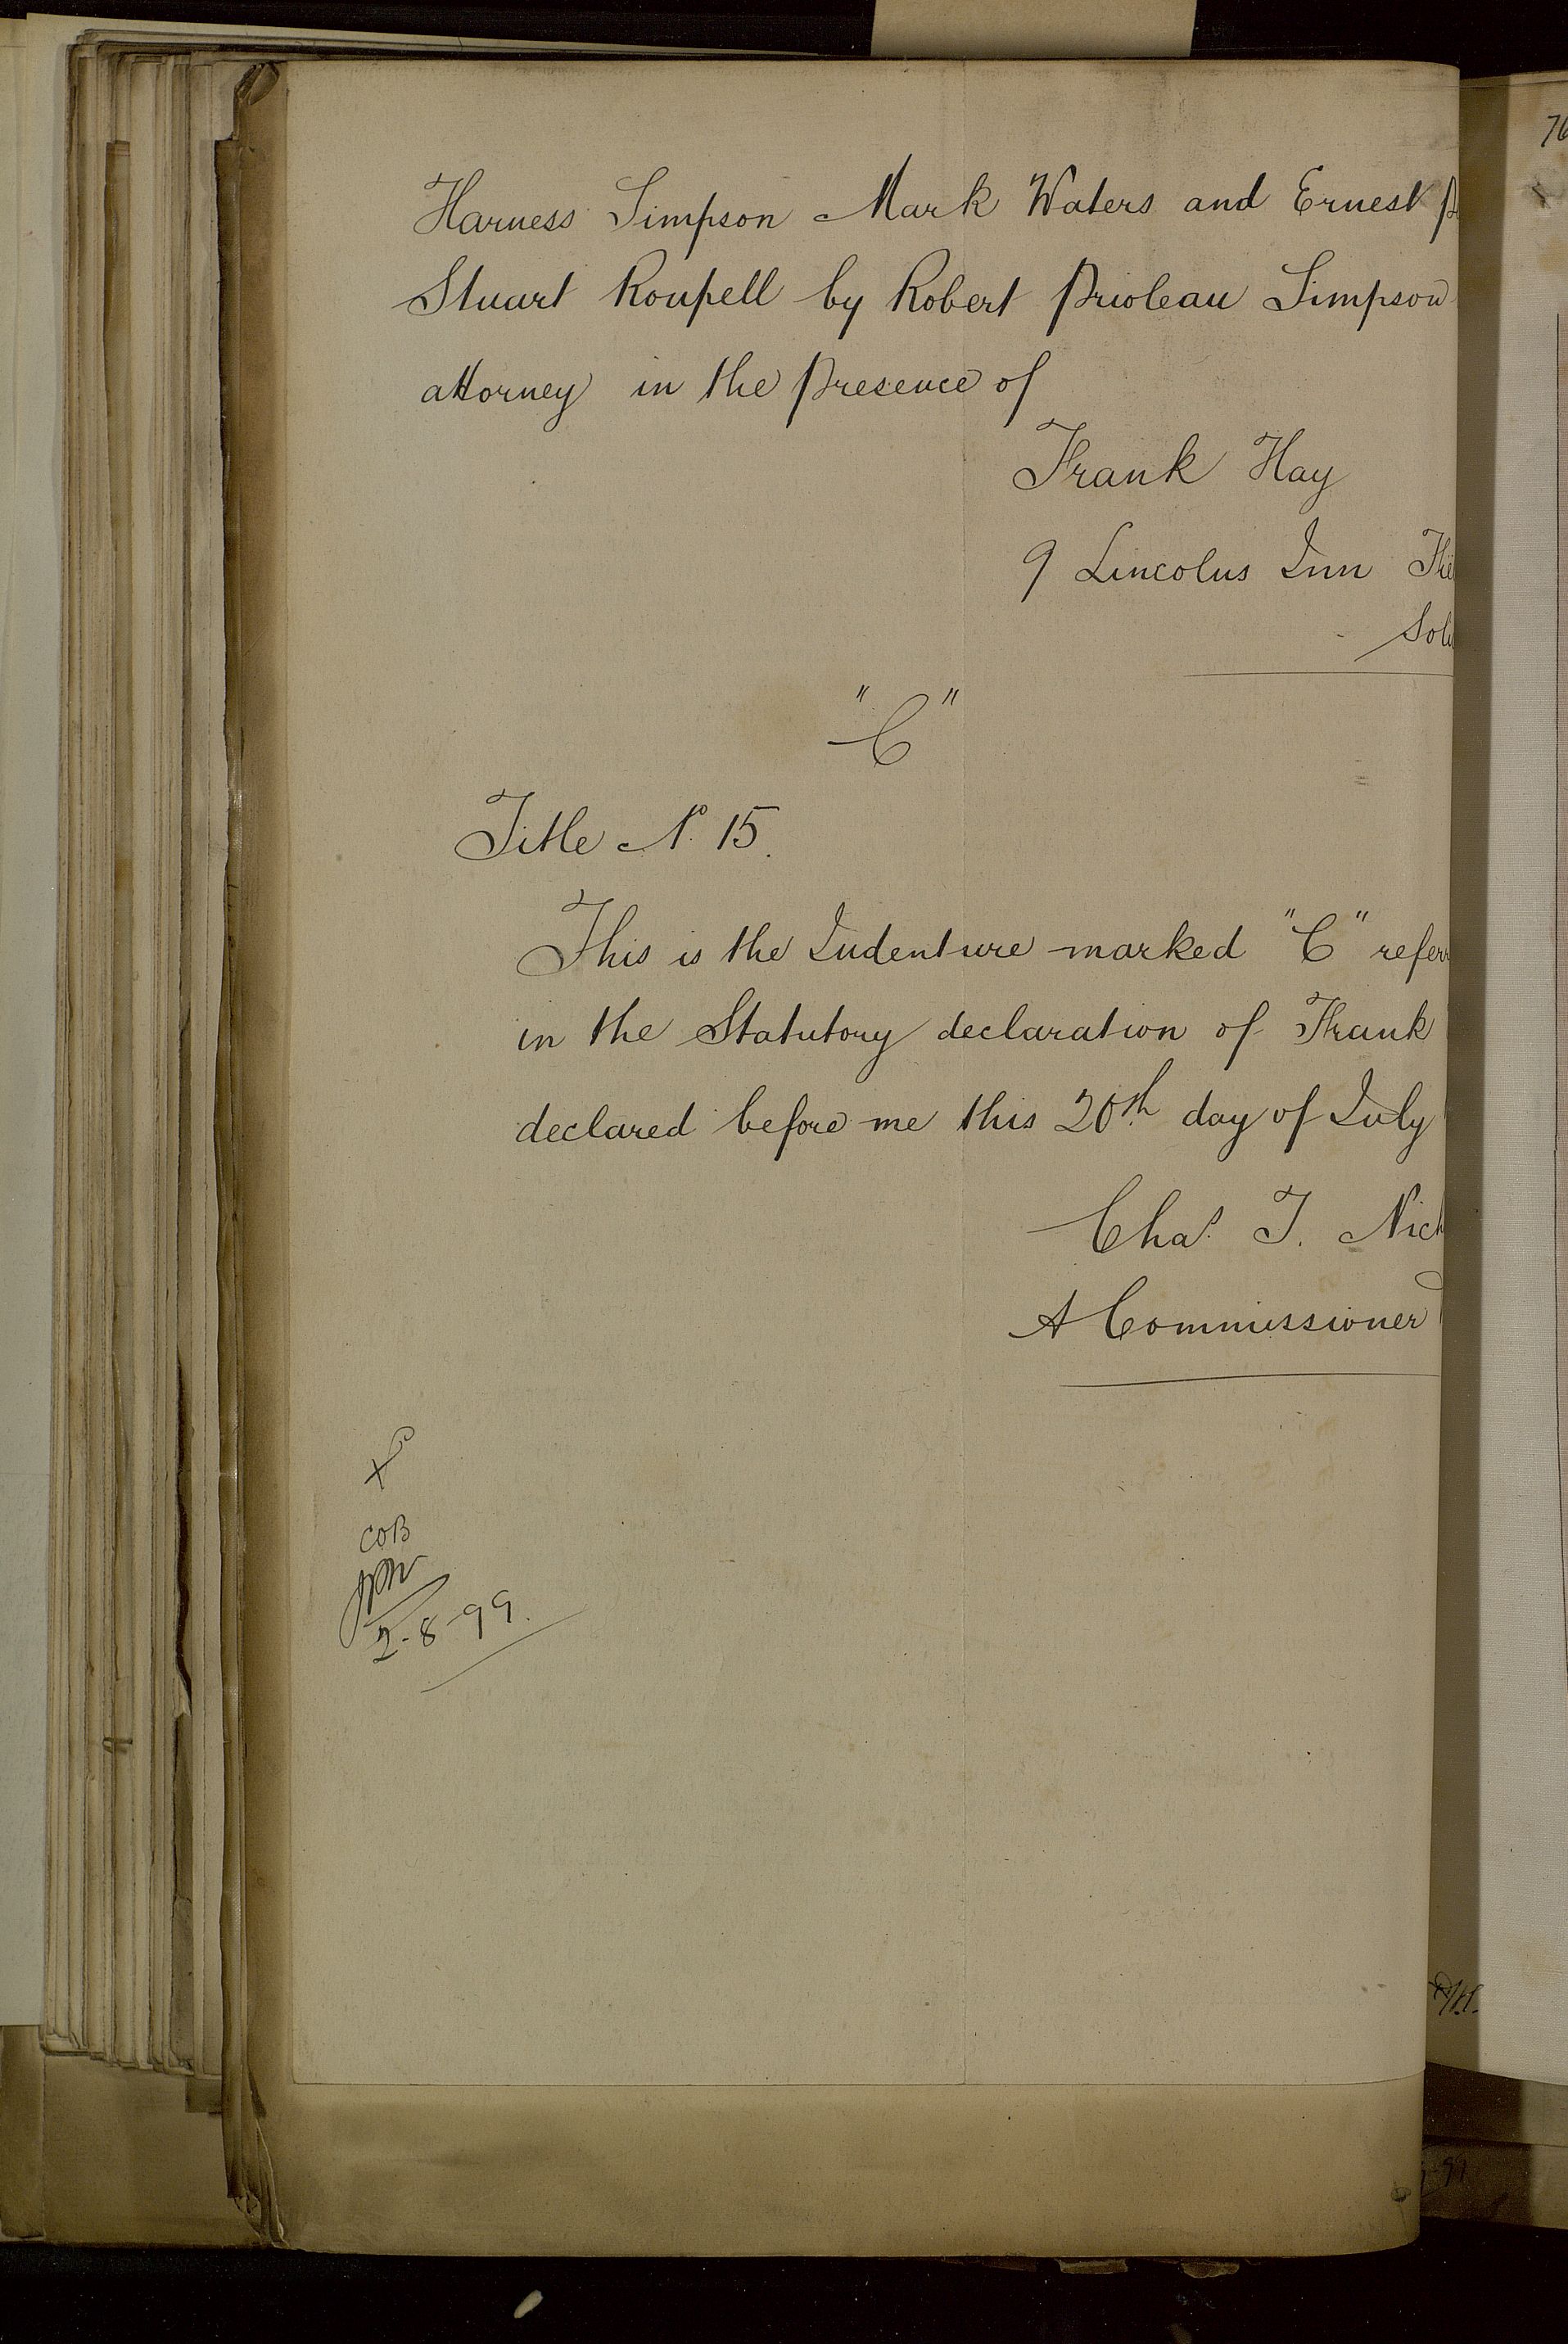 Harness Simpson Mark Waters and Ernest
Stuart Roupell by Robert Prioleau Simpson
attorney in the presence of
Frank Hay
9 Lincolns Inn Fie
Soli
"C"
Title No. 15.
This is the Indenture marked "C" referr
in the Statutory declaration of Frank
declared before me this 20th day of July
Chas. T. Nich
A Commissioner
COB
2-8-99.
76